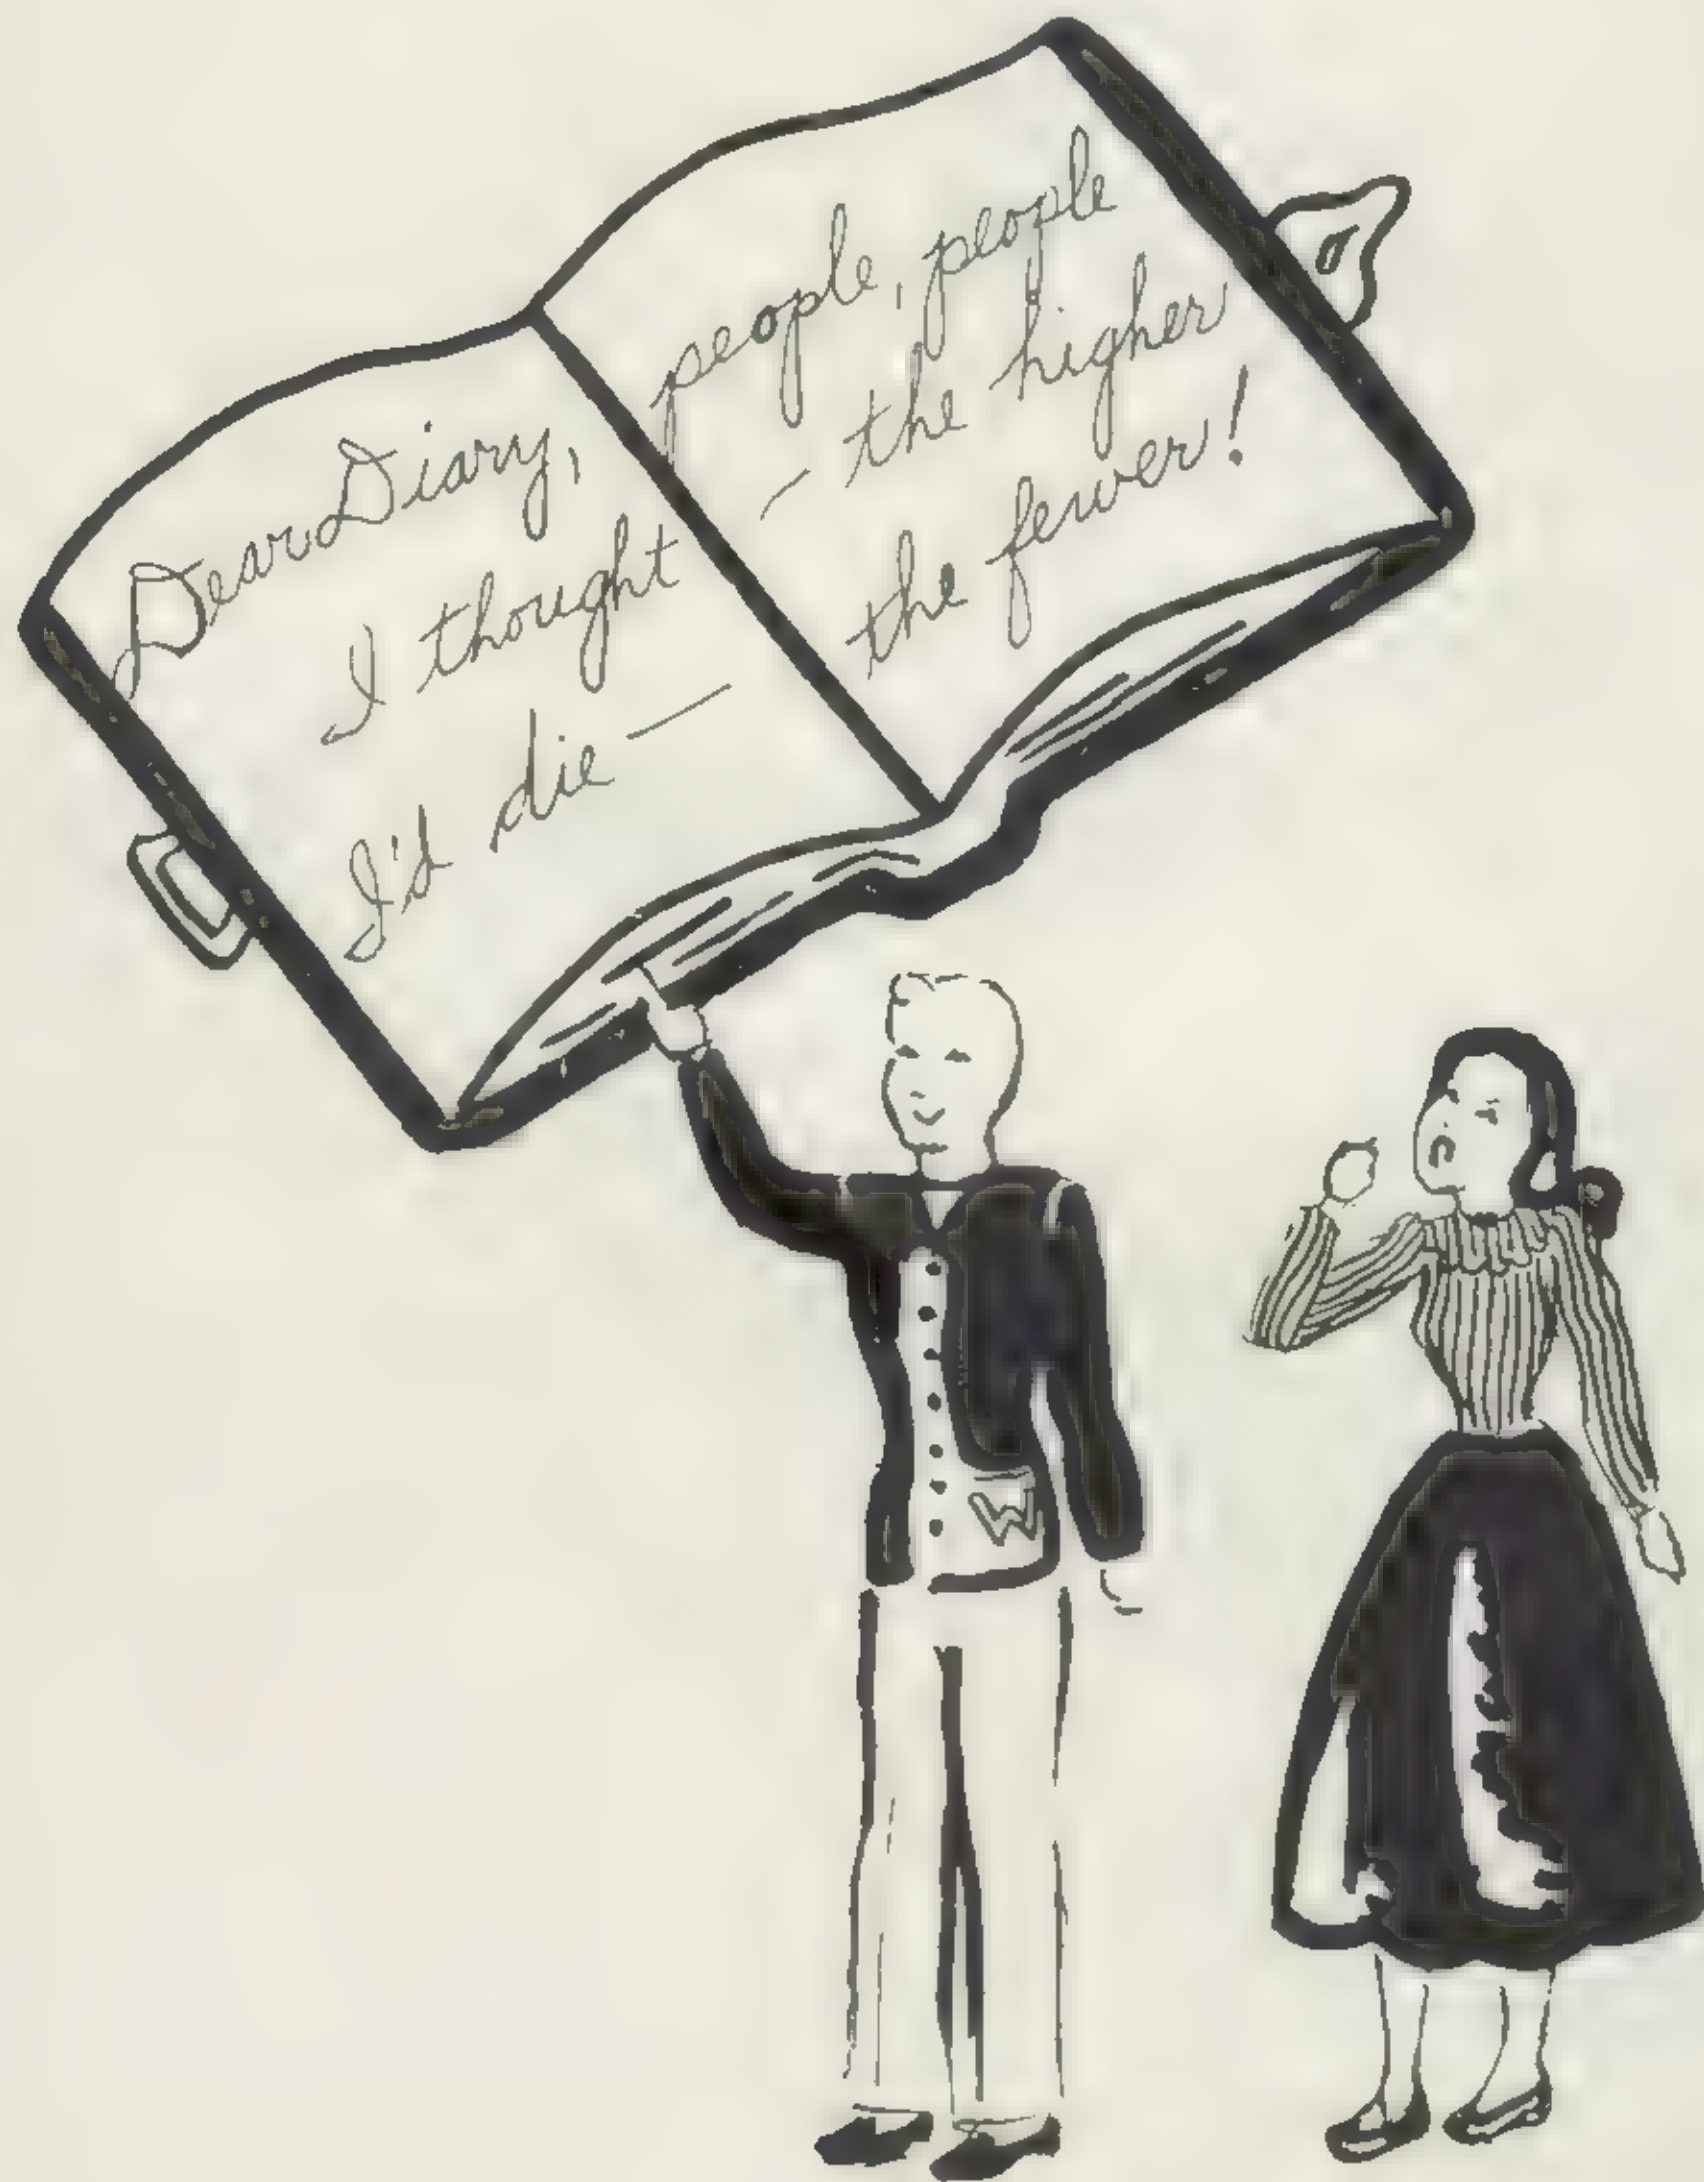 Dear Diary,
I thought
I'd die —
people, people
— the higher
the fewer!
W